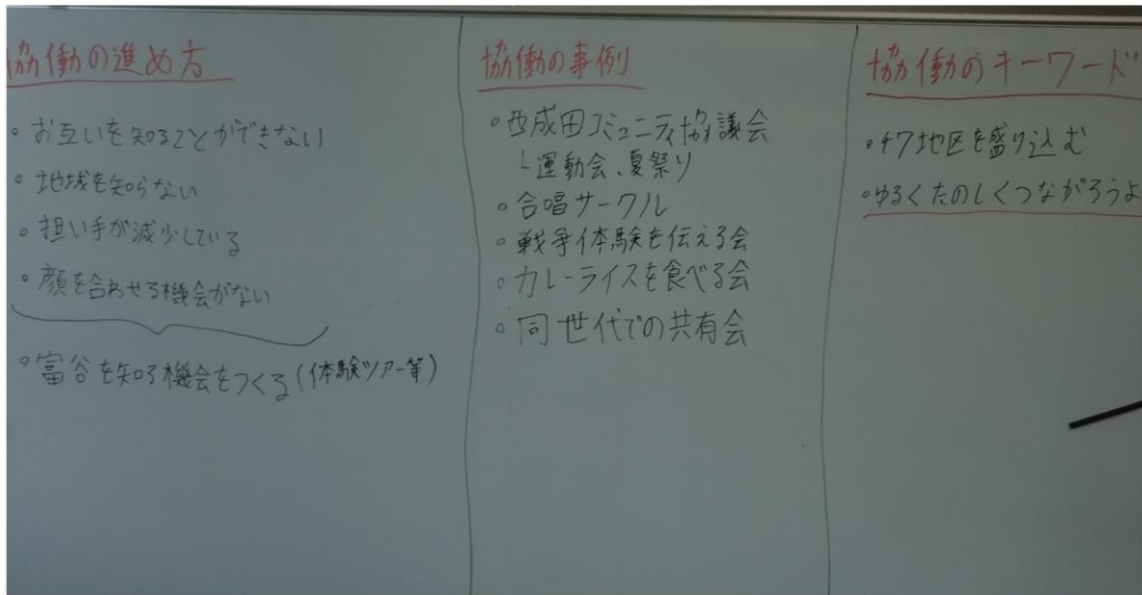 協働の進め方
・お互いを知ることができない
・地域を知らない
・担い手が減少している
・顔を合わせる機会がない
・富谷を知る機会をつくる(体験ツアー等)
協働の事例
・西成田コミュニティ協議会
└運動会、夏祭り
・合唱サークル
・戦争体験を伝える会
・カレーライスを食べる会
・同世代での共有会
協働のキーワード
・47地区を盛り込む
・ゆるくたのしくつながろうよ